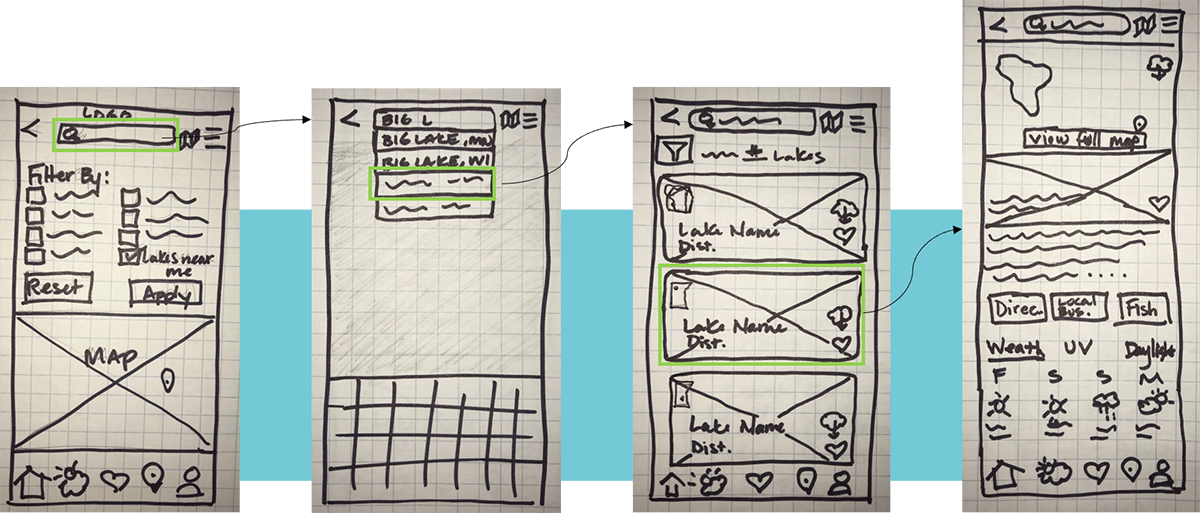 LOGO
Filter By:
Lakes near
me
Reset
Apply
MAP
BIG L
BIG LAKE, MN
BIG LAKE, WI
# Lakes
Lake Name
Dist.
Lake Name
Dist.
Lake Name
Dist.
View full map
Direc.
Local
Bus.
Fish
Weath UV Daylight
F S S M